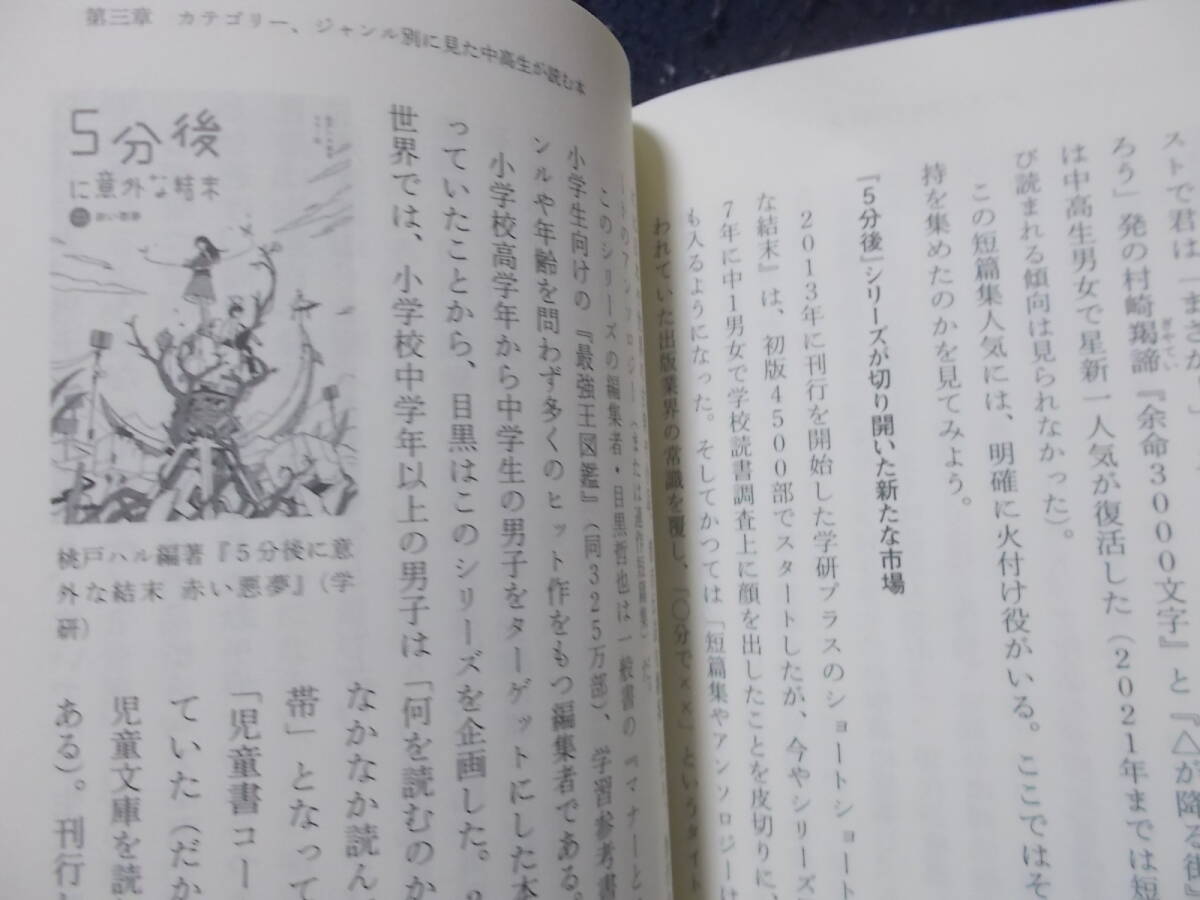 ストで君は「まさか
ろう」発の村崎羯諦『余命3000文字』と『△が降る街』
ぎゃてい
は中高生男女で星新一人気が復活した（2021年までは短
び読まれる傾向は見られなかった）。
この短篇集人気には、明確に火付け役がいる。ここではそ
持を集めたのかを見てみよう。
『5分後』シリーズが切り開いた新たな市場
2013年に刊行を開始した学研プラスのショートショート
な結末』は、初版4500部でスタートしたが、今やシリーズ
7年に中1男女で学校読書調査上に顔を出したことを皮切りに、
も入るようになった。そしてかつては「短篇集やアンソロジーは
われていた出版業界の常識を覆し、「〇分で××」というタイト
第三章 カテゴリー、ジャンル別に見た中高生が読む本
このシリーズの編集者・目黒哲也は一般書の『マナーと
小学生向けの『最強王図鑑』（同325万部）、学習参考書
ンルや年齢を問わず多くのヒット作をもつ編集者である。
小学校高学年から中学生の男子をターゲットにした本
っていたことから、目黒はこのシリーズを企画した。
世界では、小学校中学年以上の男子は「何を読むのか
なかなか読ん
帯」となって
「児童書コー
ていた（だか
児童文庫を読
ある）。刊行
5分後
に意外な結末
赤い悪夢
桃戸ハル編著『5分後に意
外な結末 赤い悪夢』（学
研）